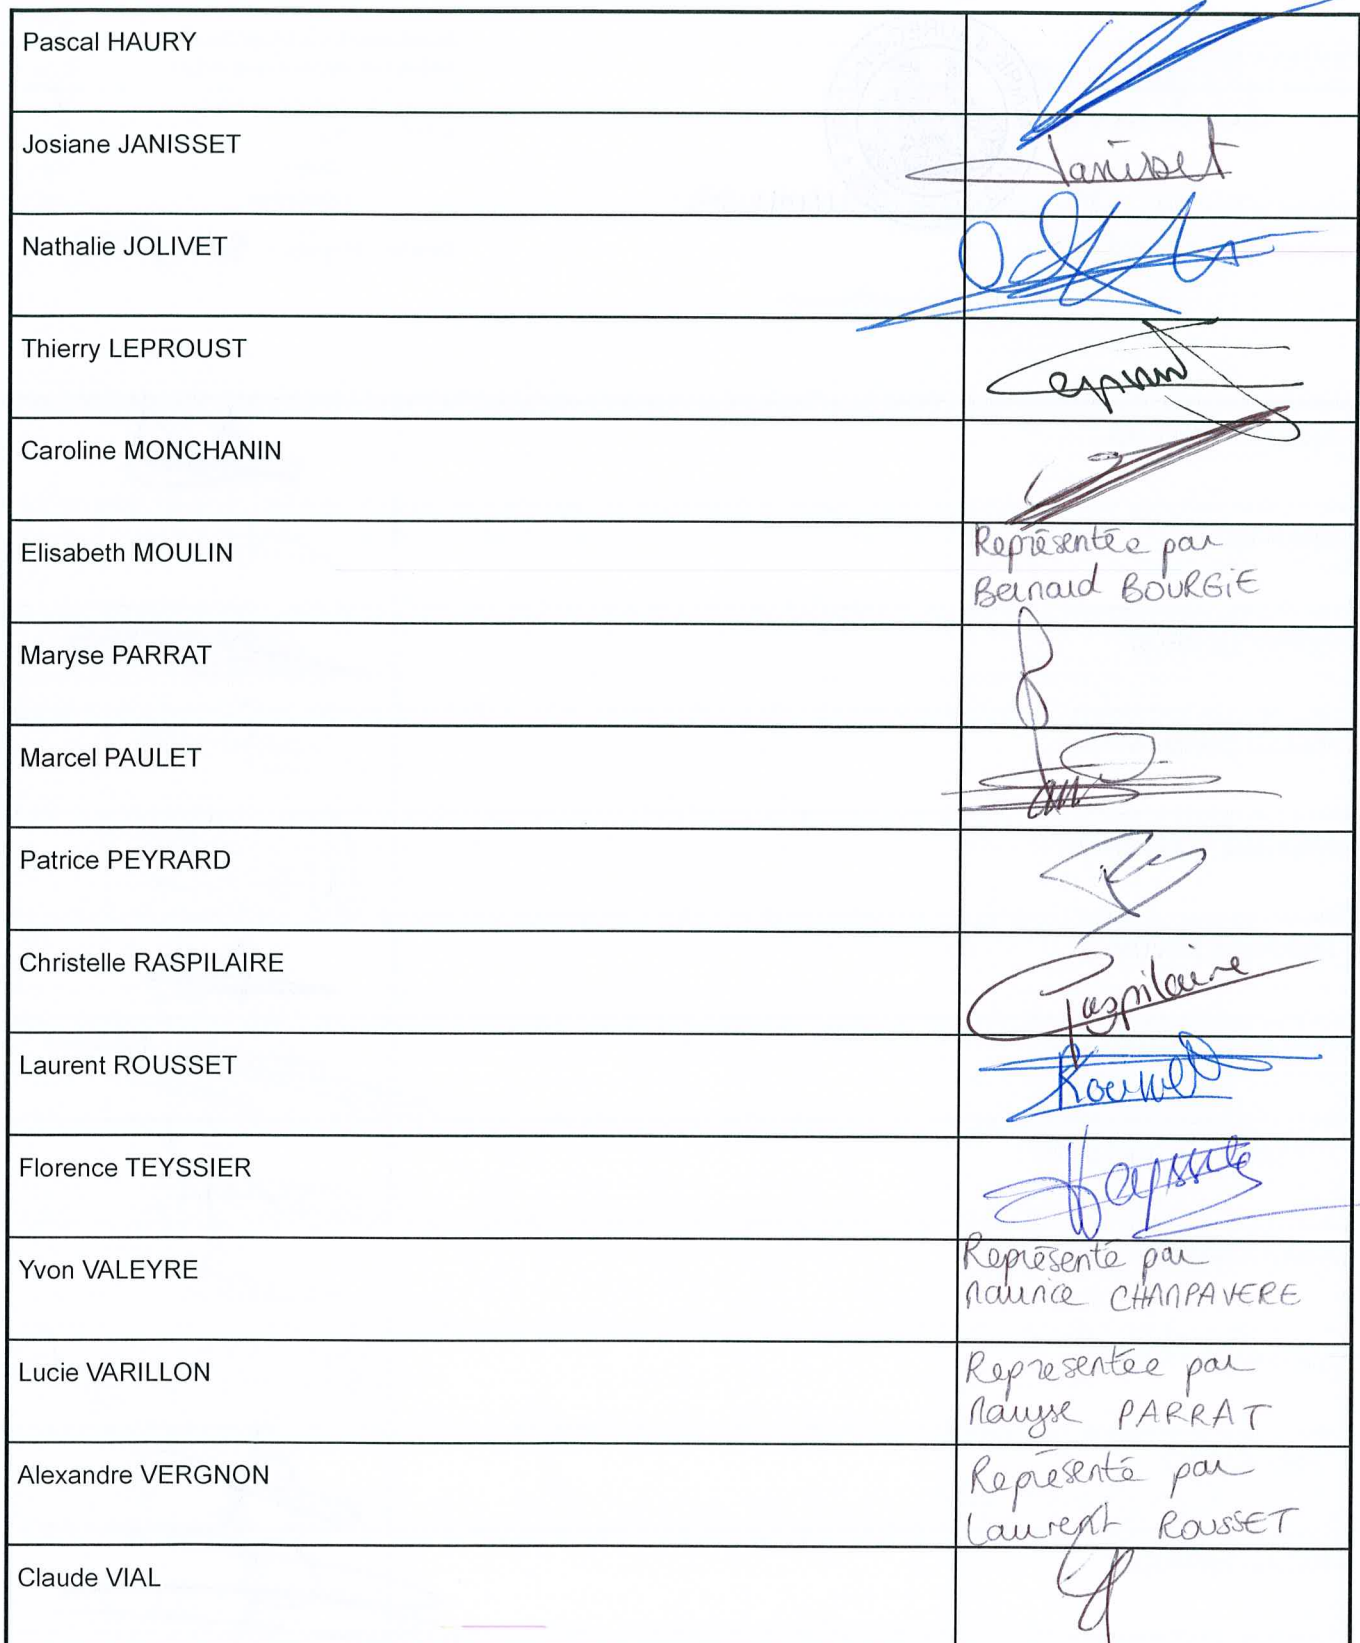 Pascal HAURY
Josiane JANISSET
Janisset
Nathalie JOLIVET
Thierry LEPROUST
Caroline MONCHANIN
Elisabeth MOULIN
Représentée par
Bernard BOURGIE
Maryse PARRAT
Marcel PAULET
Patrice PEYRARD
Christelle RASPILAIRE
Raspilaire
Laurent ROUSSET
Rousset
Florence TEYSSIER
Yvon VALEYRE
Représenté par
Maurice CHAMPAVERE
Lucie VARILLON
Représentée par
Maryse PARRAT
Alexandre VERGNON
Représenté par
Laurent ROUSSET
Claude VIAL